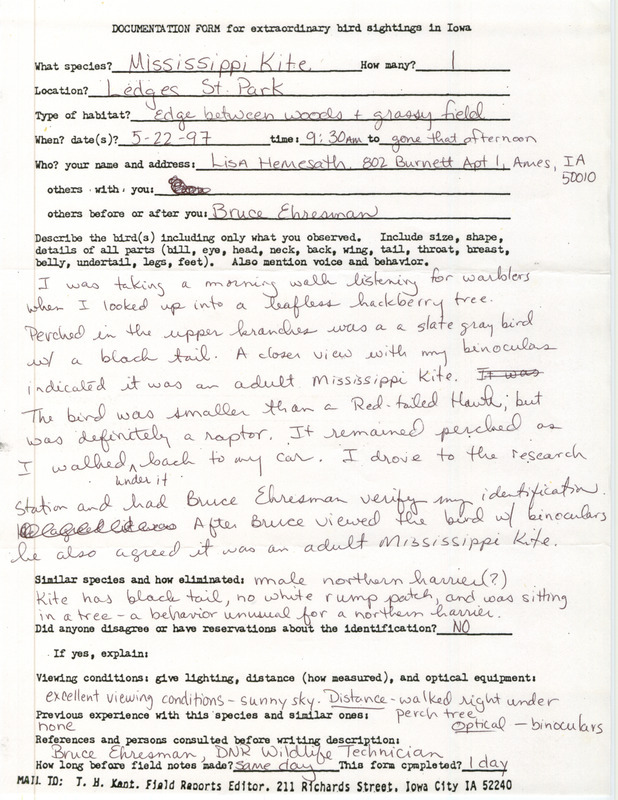 DOCUMENTATION FORM for extraordinary bird sightings in Iowa
What species? Mississippi Kite How many? 1
Location? Ledges St. Park
Type of habitat? Edge between woods + grassy field
When? date(s)? 5-22-97 time: 9:30AM to gone that afternoon
Who? your name and address: Lisa Hemesath, 802 Burnett Apt 1, Ames, IA
50010
others with you:
others before or after you: Bruce Ehresman
Describe the bird(s) including only what you observed. Include size, shape,
details of all parts (bill, eye, head, neck, back, wing, tail, throat, breast,
belly, undertail, legs, feet). Also mention voice and behavior.
I was taking a morning walk listening for warblers
when I looked up into a leafless hackberry tree.
Perched in the upper branches was a a slate gray bird
w/ a black tail. A closer view with my binoculars
indicated it was an adult Mississippi Kite. It was
The bird was smaller than a Red-tailed Hawk, but
was definitely a raptor. It remained perched as
I walked back to my car. I drove to the research
under it
station and had Bruce Ehresman verify my identification.
After Bruce viewed the bird w/ binoculars
he also agreed it was an adult Mississippi Kite.
Similar species and how eliminated: male northern harrier(?)
Kite has black tail, no white rump patch, and was sitting
in a tree - a behavior unusual for a northern harrier.
Did anyone disagree or have reservations about the identification? NO
If yes, explain:
Viewing conditions: give lighting, distance (how measured), and optical equipment:
excellent viewing conditions - sunny sky. Distance - walked right under
perch tree
Previous experience with this species and similar ones:
none Optical - binoculars
References and persons consulted before writing description:
Bruce Ehresman, DNR Wildlife Technician
How long before field notes made? same day This form completed? 1 day
MAIL TO: T. H. Kent, Field Reports Editor, 211 Richards Street, Iowa City IA 52240